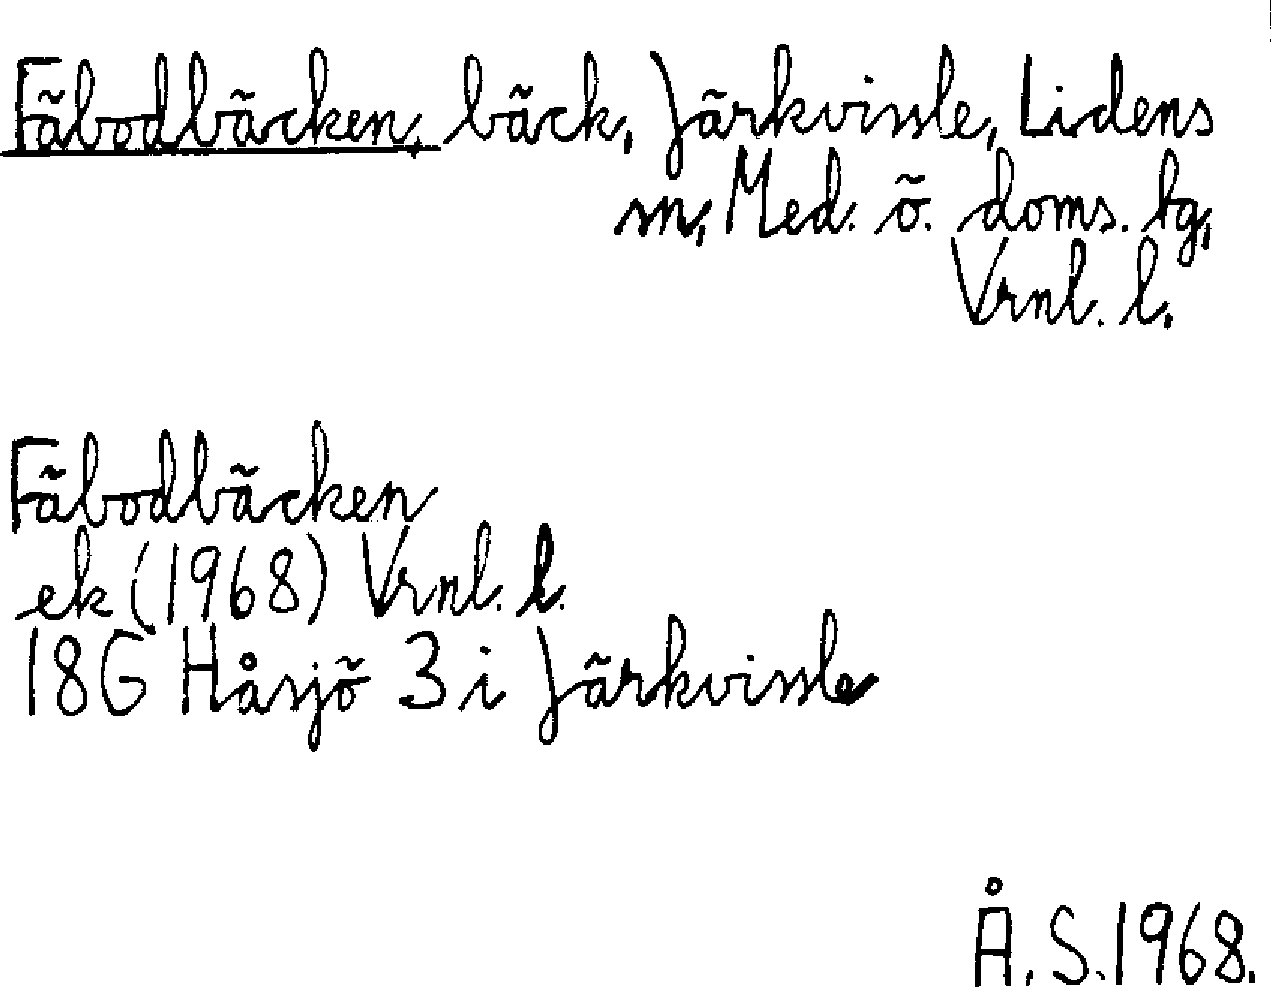 Fäbodbäcken, bäck, Järkvissle, Lidens
sn, Med. ö. doms. lg,
Vrnl. l.
Fäbodbäcken
ek (1968) Vrnl. l.
18G Håsjö 3 i Järkvissle
Å. S. 1968.